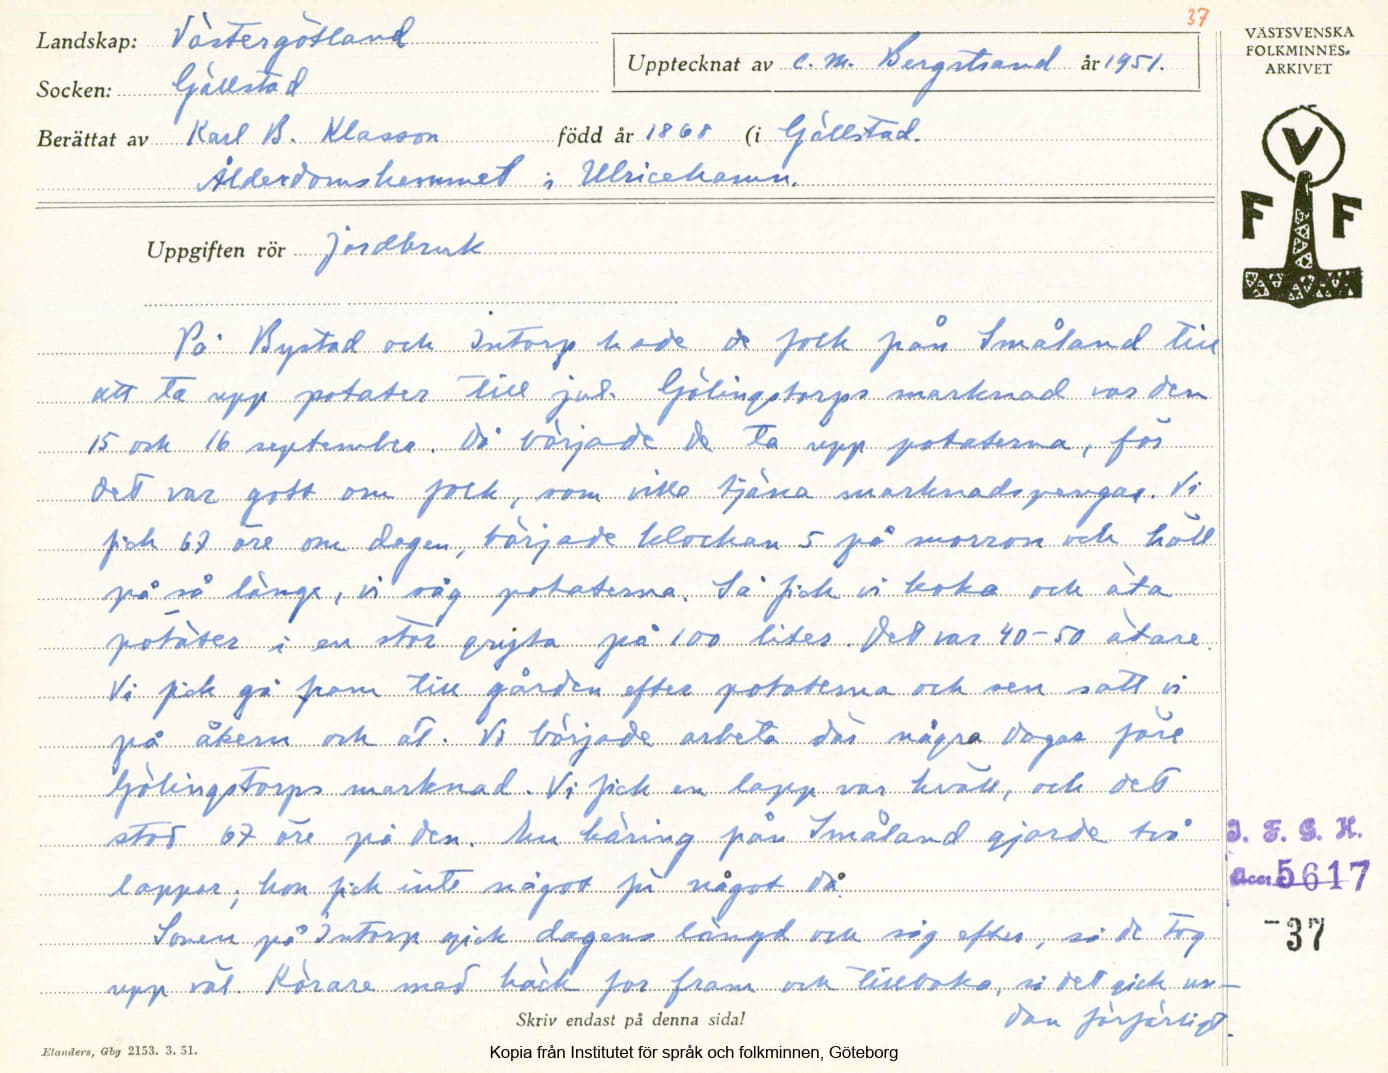 37
Landskap: Västergötland
Upptecknat av C. M. Bergstrand år 1951.
VÄSTSVENSKA
FOLKMINNES-
ARKIVET
Socken: Gällstad
Berättat av Karl B. Klasson född år 1868 (i Gällstad.
Ålderdomshemmet i Ulricehamn.
V
F F
Uppgiften rör jordbruk
På Bystad och Intorp hade de folk från Småland till
att ta upp potater till jul. Gölingstorps marknad var den
15 och 16 september. Då började de ta upp potaterna, för
det var gott om folk, som ville tjäna marknadspengar. Vi
fick 67 öre om dagen, började klockan 5 på morron och höll
på så länge, vi såg potaterna. Så fick vi koka och äta
potäter i en stor gryta på 100 liter. Det var 40-50 ätare.
Vi fick gå fram till gården efter potaterna och sen satt vi
på åkern och åt. Vi började arbeta där några dagar före
Gölingstorps marknad. Vi fick en lapp var kväll, och det
stod 67 öre på den. En käring från Småland gjorde två
lappar, hon fick inte något för något då.
Sonen på Intorp gick dagens längd och såg efter, så de tog
upp väl. Körare med häck for fram och tillbaka, så det gick un-
dan förfärligt.
I. F. G. H.
Acc. 5617
-37
Skriv endast på denna sida!
Elanders, Gbg 2153. 3. 51.
Kopia från Institutet för språk och folkminnen, Göteborg